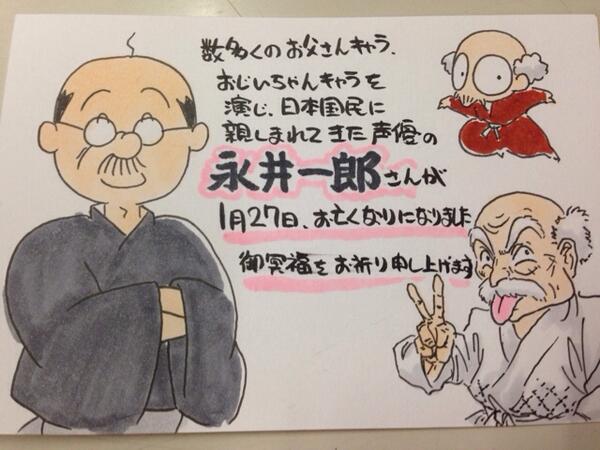 数多くのお父さんキャラ、
おじいちゃんキャラを
演じ、日本国民に
親しまれてきた声優の
永井一郎さんが
1月27日、お亡くなりになりました
御冥福をお祈り申し上げます